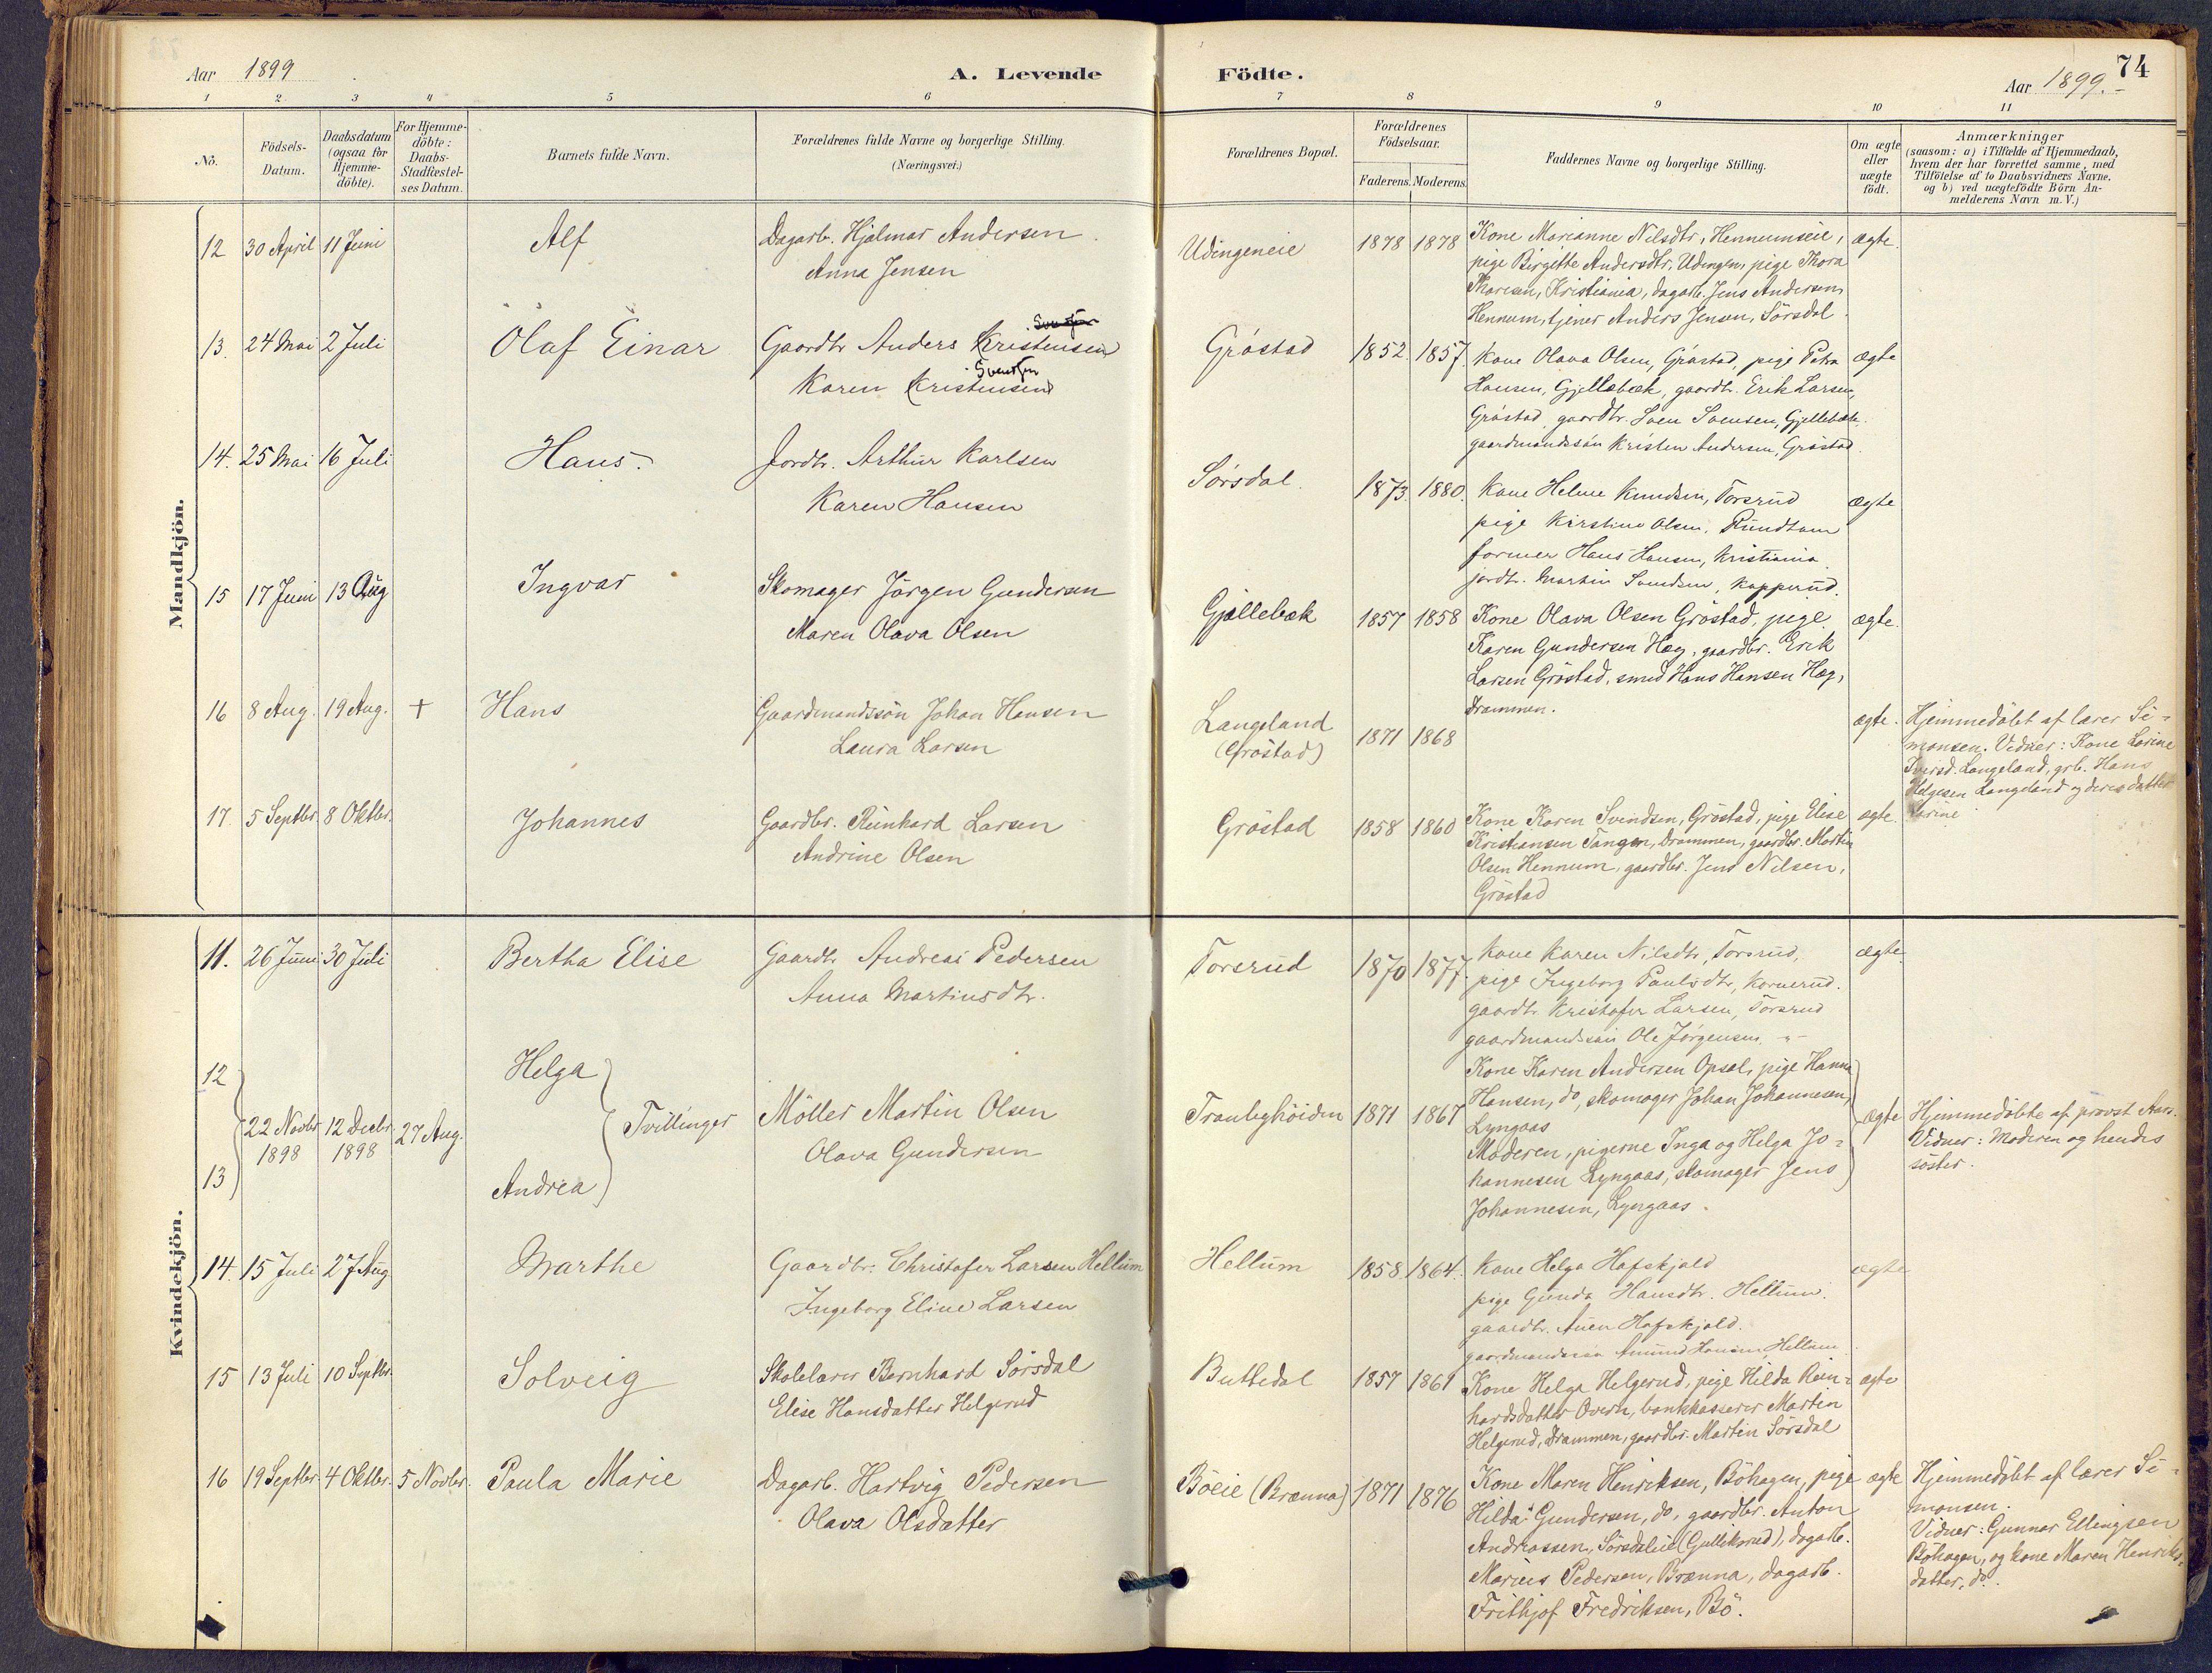 Aar 1899
A. Levende
Födte.
74
Aar 1899.
1 2 3 4 5 6 7 8 9 10 11
No.
Födsels-Datum.
Daabsdatum (ogsaa for Hjemme-döbte).
For Hjemme-döbte: Daabs-Stadfæstel-ses Datum.
Barnets fulde Navn.
Forældrenes fulde Navne og borgerlige Stilling.
(Næringsvei.)
Forældrenes Bopæl.
Forældrenes Födselsaar.
Faderens. Moderens.
Faddernes Navne og borgerlige Stilling.
Om ægte eller uægte födt.
Anmærkninger
(saasom: a) i Tilfælde af Hjemmedaab,
hvem der har forrettet samme, med
Tilföielse af to Daabsvidners Navne.
og b) ved uægtefödte Börn An-
melderens Navn m. V.)
Mandkjön.
12 30 April 11 Juni Alf
Dagarb. Hjalmar Andersen
Anna Jensen
Udingeneie 1878 1878
Kone Marianne Nilsdtr, Hennumseie,
pige Birgitte Andersdtr, Udingen, pige Thora
Thoresen, Kristiania, dagarb. Jens Andersen
Hennum, tjener Anders Jensen, Sörsdal.
ægte.
13. 24 Mai 2 Juli Olaf Einar
Gaardbr Anders Kristensen
Karen (Kristensen) Svendsen
Gröstad 1852. 1857.
Kone Olava Olsen, Gröstad, pige Petra
Hansen, Gjellebæk, gaardbr. Erik Larsen,
Gröstad, gaardbr. Sven Svensen, Gjellebæk.
gaardmandssön Kristen Andersen, Gröstad.
ægte
14. 25 Mai 16 Juli Hans.
Jordbr. Arthur Karlsen
Karen Hansen
Sörsdal. 1873. 1880.
Kone Helene Knudsen, Torsrud
pige Kirstine Olsen,
former Hans Hansen, Kristiania.
jordbr. Martin Svendsen, Kopperud.
ægte
15 17 Juni 13 Aug Ingvar
Skomager Jörgen Gundersen
Maren Olava Olsen
Gjellebæk 1857 1858
Kone Olava Olsen Gröstad, pige
Karen Gundersen Hæg, gaardbr. Erik
Larsen Gröstad, smed Hans Hansen Hæg,
Drammen.
ægte.
16 8 Aug. 19 Aug. + Hans
Gaardmandssön Johan Hansen
Laura Larsen
Langeland
(Gröstad) 1871 1868
ægte.
Hjemmedöbt af lærer Si-
monsen. Vidner: Kone Larine
Iversd. Langeland, grb. Hans
Helgesen Langeland og deres datter
Larine
17. 5 Septbr. 8 Oktbr. Johannes
Gaardbr. Reinhard Larsen
Andrine Olsen
Gröstad 1858 1860
Kone Karen Svendsen, Gröstad, pige Elise
Kristiansen Tangen, Drammen, gaardbr. Martin
Olsen Hennum, gaardbr. Jens Nilsen,
Gröstad
ægte.
Kvindekjön.
11. 26 Juni 30 Juli Bertha Elise
Gaardbr Andreas Pedersen
Anna Martinsdtr.
Torsrud 1870 1877.
Kone Karen Nilsdtr, Torsrud,
pige Ingeborg Paulsdtr, Kornerud.
gaardbr. Kristofer Larsen, Torsrud
gaardmandssön Ole Jörgensen. -"-
ægte
12 Helga
13 Andrea
Tvillinger
22 Novbr 1898 12 Decbr. 1898 27 Aug.
Möller Martin Olsen
Olava Gundersen
Tranbyhöiden 1871 1867
Kone Karen Andersen Opsal, pige Hanna
Hansen, do, skomager Johan Johannesen,
Lyngaas
Moderen, pigerne Inga og Helga Jo-
hannesen Lyngaas, skomager Jens
Johannesen, Lyngaas.
ægte
Hjemmedöbte af provst Aars.
Vidner: Moderen og hendes
söster.
14. 15 Juli 27 Aug Marthe
Gaardbr. Christofer Larsen Hellum
Ingeborg Eline Larsen
Hellum 1858. 1864.
Kone Helga Hafskjold
pige Gunda Hansdtr. Hellum.
gaardbr. Hafskjold.
gaardmandssön Amund Hansen, Hellum.
ægte
15 13 Juli 10 Septbr. Solveig
Skolelærer Bernhard Sörsdal
Elise Hansdatter Helgerud
Buttedal 1857 1861
Kone Helga Helgerud, pige Hilda Rein-
hardsdatter Overn, bankkasserer Martin
Helgerud, Drammen, gaardbr. Martin Sörsdal
ægte
16 19 Septbr. 4 Oktbr. 5 Novbr. Paula Marie
Dagarb. Hartvig Pedersen
Olava Olsdatter
Böeie (Brænna) 1871 1876
Kone Maren Henriksen, Böhagen, pige
Hilda Gundersen, do, gaardbr. Anton
Andreassen, Sörsdaleie (Gulliksrud), dagarb.
Marius Pedersen, Brænna, dagarb.
Frithjof Fredriksen, Bö.
ægte
Hjemmedöbt af lærer Si-
monsen.
Vidner: Gunnar Ellingsen
Böhagen, og kone Maren Henriks-
datter, do.